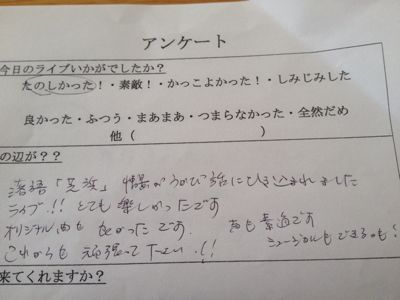 アンケート
今日のライブいかがでしたか？
たのしかった！・素敵！・かっこよかった！・しみじみした
良かった・ふつう・まあまあ・つまらなかった・全然だめ
他（　　　　　　　　　　）
の辺が？？
落語「芝浜」情景がうかび話にひき込まれました
ライブ!! とても楽しかったです
オリジナル曲も良かったです 声も素適です
これからも頑張って下さい!! ミュージカルもできるかも!
来てくれますか？